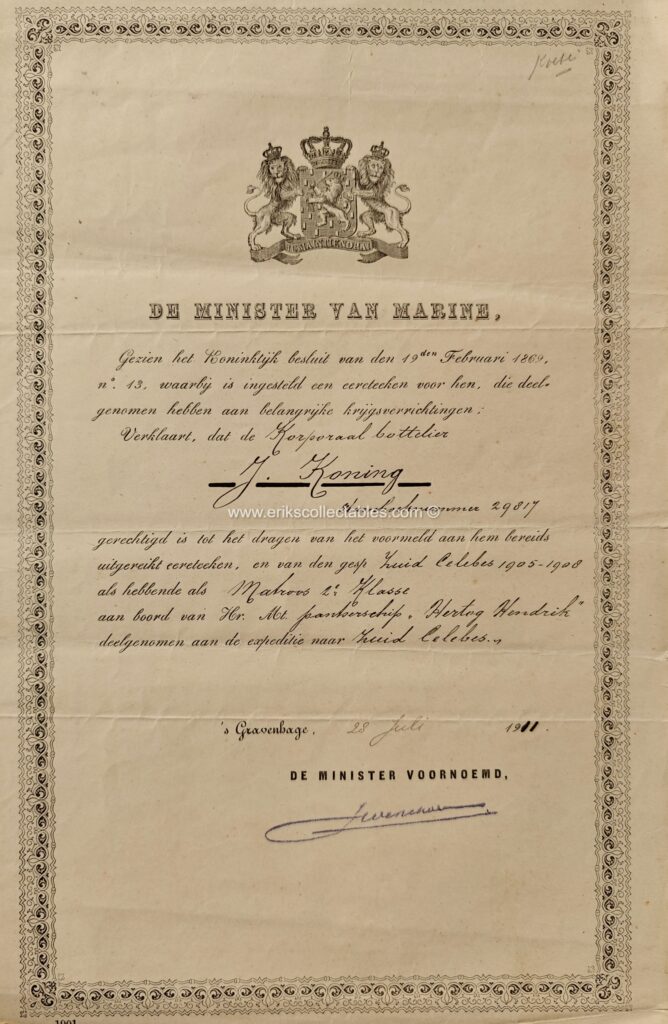 JE MAINTIENDRAI
DE MINISTER VAN MARINE,
Gezien het Koninklijk besluit van den 19den Februari 1869,
no. 13, waarbij is ingesteld een eereteeken voor hen, die deel-
genomen hebben aan belangrijke krijgsverrichtingen;
Verklaart, dat de Korporaal bottelier
J. Koning
29817
www.erikscollectables.com ©
gerechtigd is tot het dragen van het voormeld aan hem bereids
uitgereikt eereteeken, en van den gesp Zuid Celebes 1905-1908
als hebbende als Matroos 2e Klasse
aan boord van Hr. Mt. pantserschip „Hertog Hendrik"
deelgenomen aan de expeditie naar Zuid Celebes.„
's Gravenhage, 28 Juli 1911.
DE MINISTER VOORNOEMD,